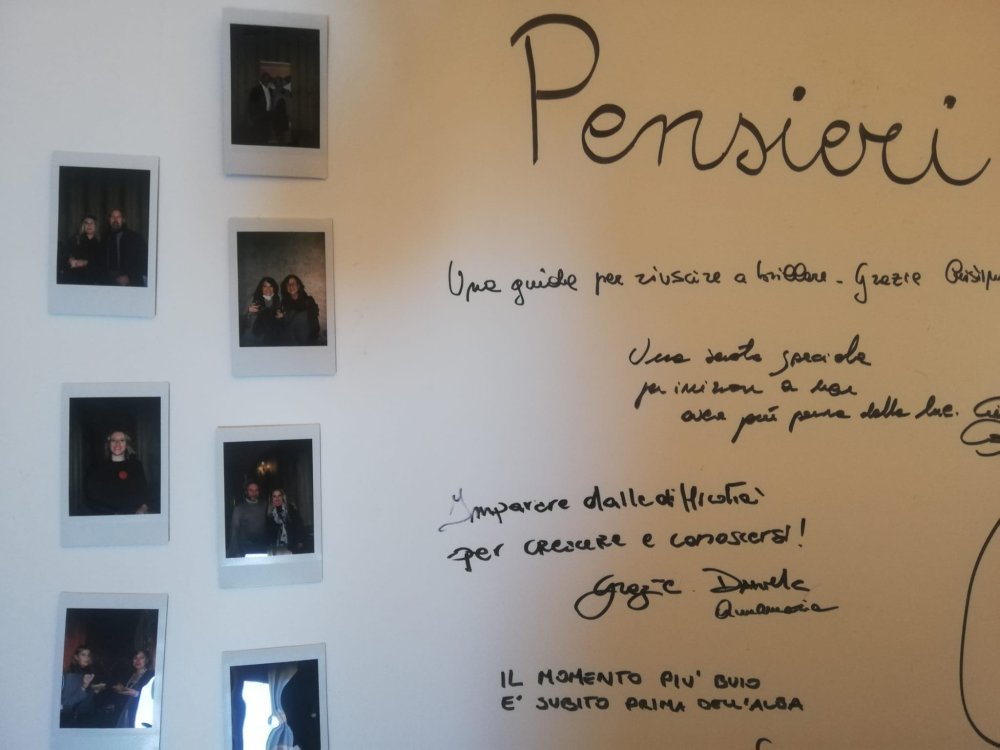 Pensieri
Una guida per riuscire a brillare. Grazie
Una serata speciale
per iniziare a non
aver più paura della luce.
Imparare dalle difficoltà
per crescere e conoscersi!
Grazie Daniela
Annamaria
IL MOMENTO PIU' BUIO
E' SUBITO PRIMA DELL'ALBA